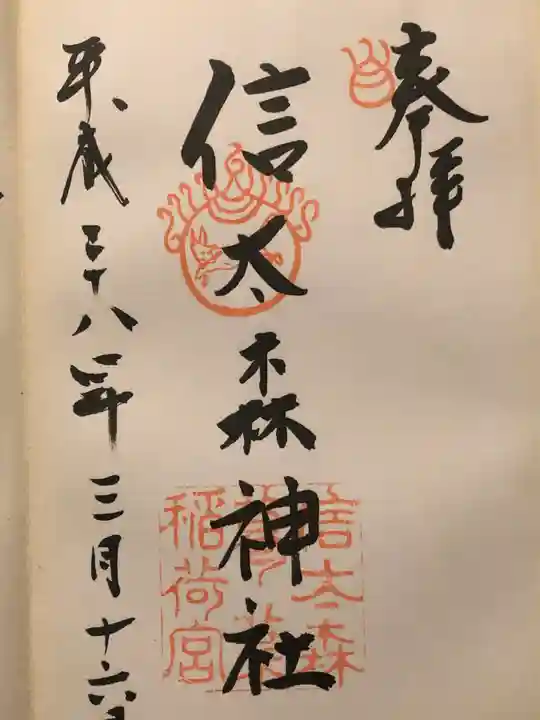 奉拝
信太森神社
平成二十八年三月十六日
信太森
葛葉
稲荷宮